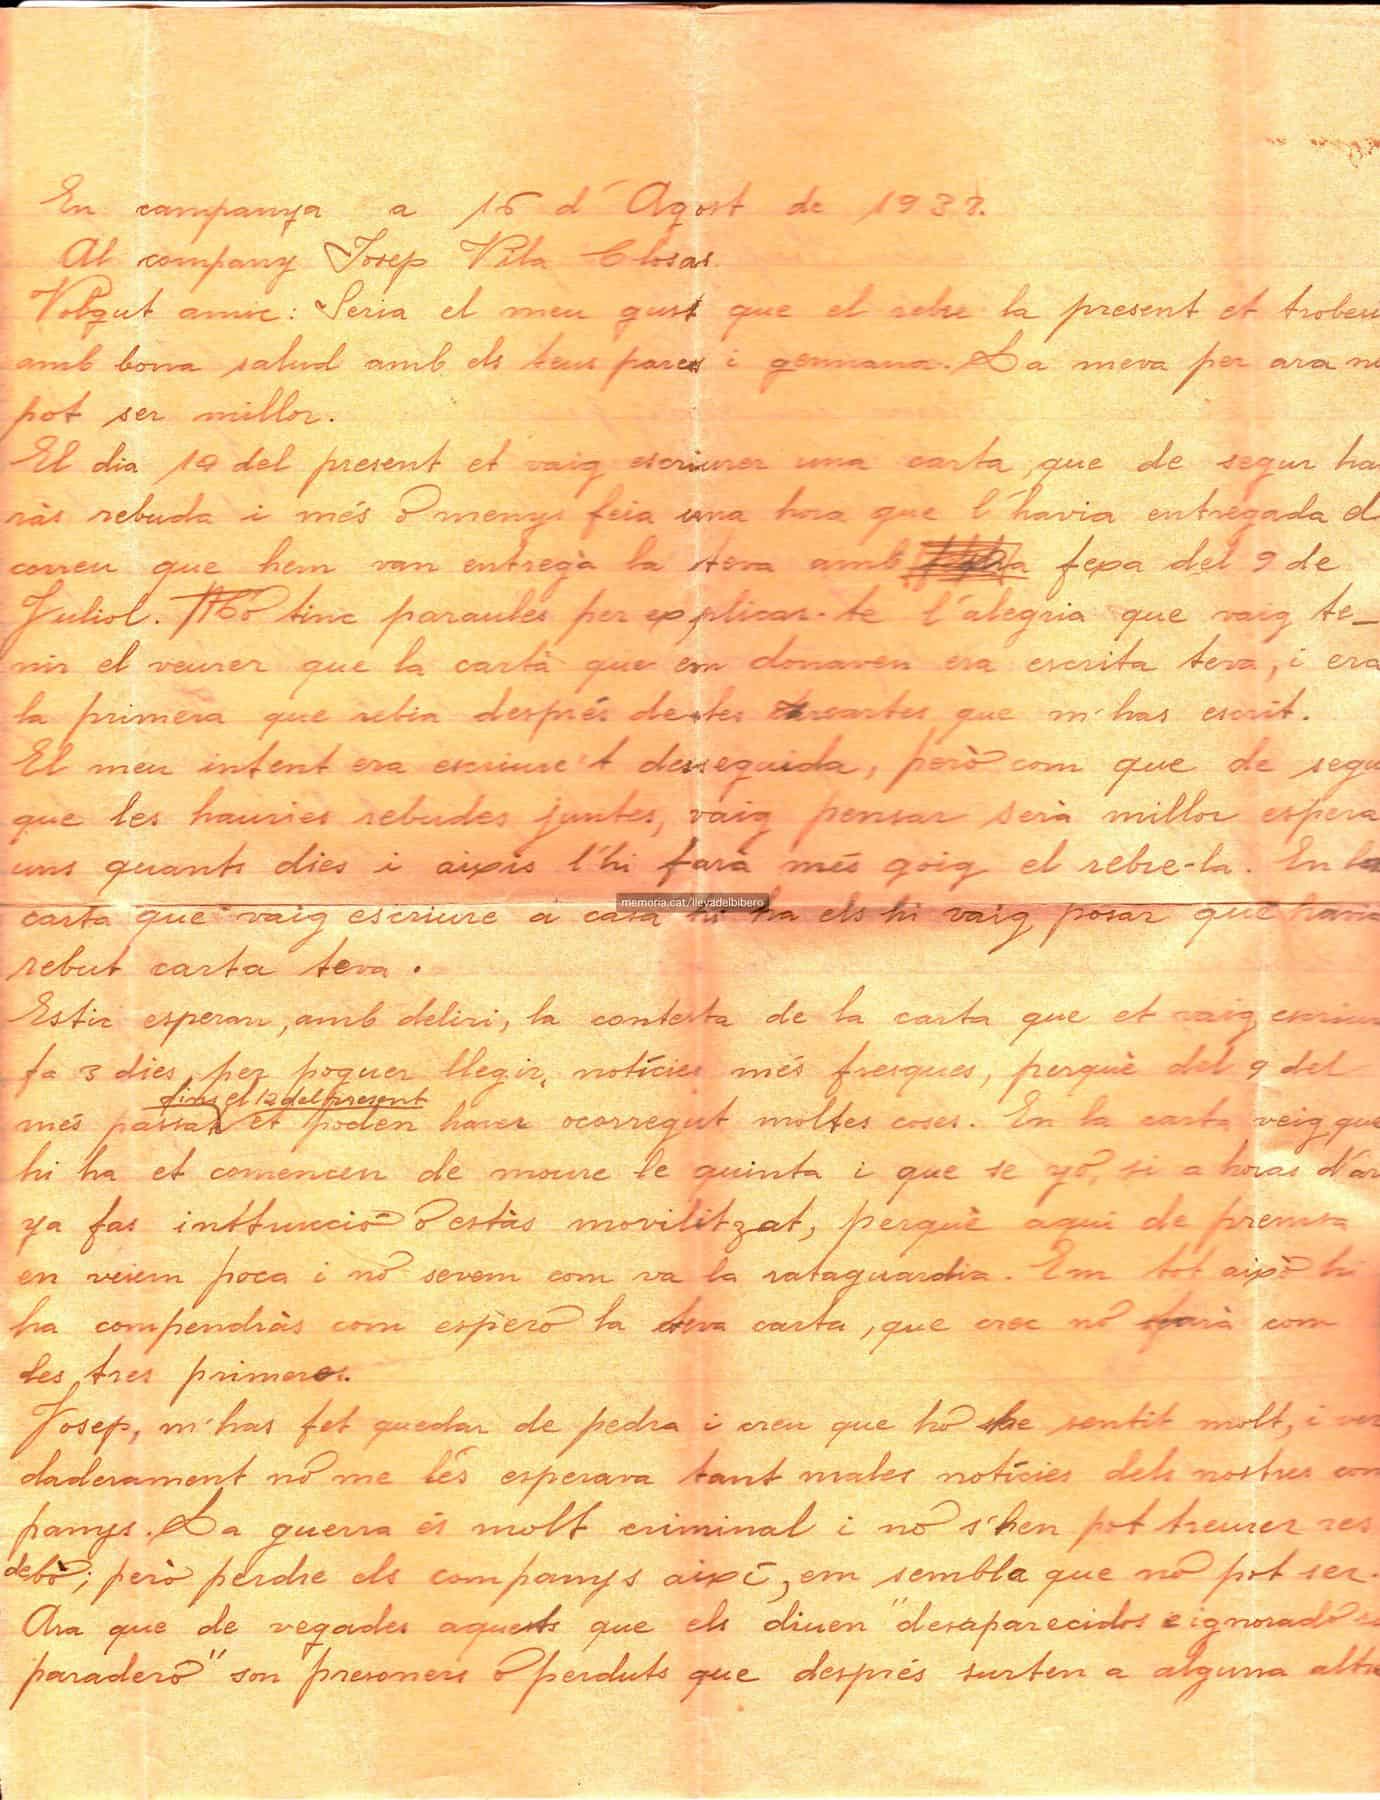 En campanya a 15 d'Agost de 1937.
Al company Josep Vila Closas
Volgut amic: Seria el meu gust que el rebre la present et trobeu
amb bona salud amb els teus pares i germana. La meva per ara no
pot ser millor.
El dia 12 del present et vaig escriurer una carta, que de segur hau
ràs rebuda i més o menys feia una hora que l'havia entregada el
correu que hem van entregà la teva amb fexa del 9 de
Juliol. No tinc paraules per explicar-te l'alegria que vaig te-
nir el veurer que la carta que em donaven era escrita teva, i era
la primera que rebia després de les cartes que m'has escrit.
El meu intent era escriure't desseguida, però com que de segu
que les hauries rebudes juntes, vaig pensar serà millor espera
uns quants dies i aixis l'hi farà més goig el rebre-la. En la
carta que vaig escriure a casa hi ha els hi vaig posar que havia
memoria.cat/llevadelbibero
rebut carta teva.
Estic esperan, amb deliri, la contesta de la carta que et vaig escriure
fa 3 dies, per poguer llegir, notícies més fresques, perquè del 9 del
fins el 12 del present
més passat et poden haver ocorregut moltes coses. En la carta veig que
hi ha et comencen de moure le quinta i que se yo, si a horas d'ar
ya fas inttrucció o estàs movilitzat, perquè aqui de premsa
en veiem poca i no sevem com va la rataguardia. Em tot aixo hi
ha compendràs com espero la teva carta, que crec no farà com
les tres primeres.
Josep, m'has fet quedar de pedra i creu que ho he sentit molt, i ver
daderament no me lés esperava tant males notícies dels nostres com
panys. La guerra és molt criminal i no s'hen pot treurer res
debò; però perdre els companys així, em sembla que no pot ser.
Ara que de vegades aquests que els diuen "desaparecidos e ignorado su
paradero" son presoners o perduts que després surten a alguna altra